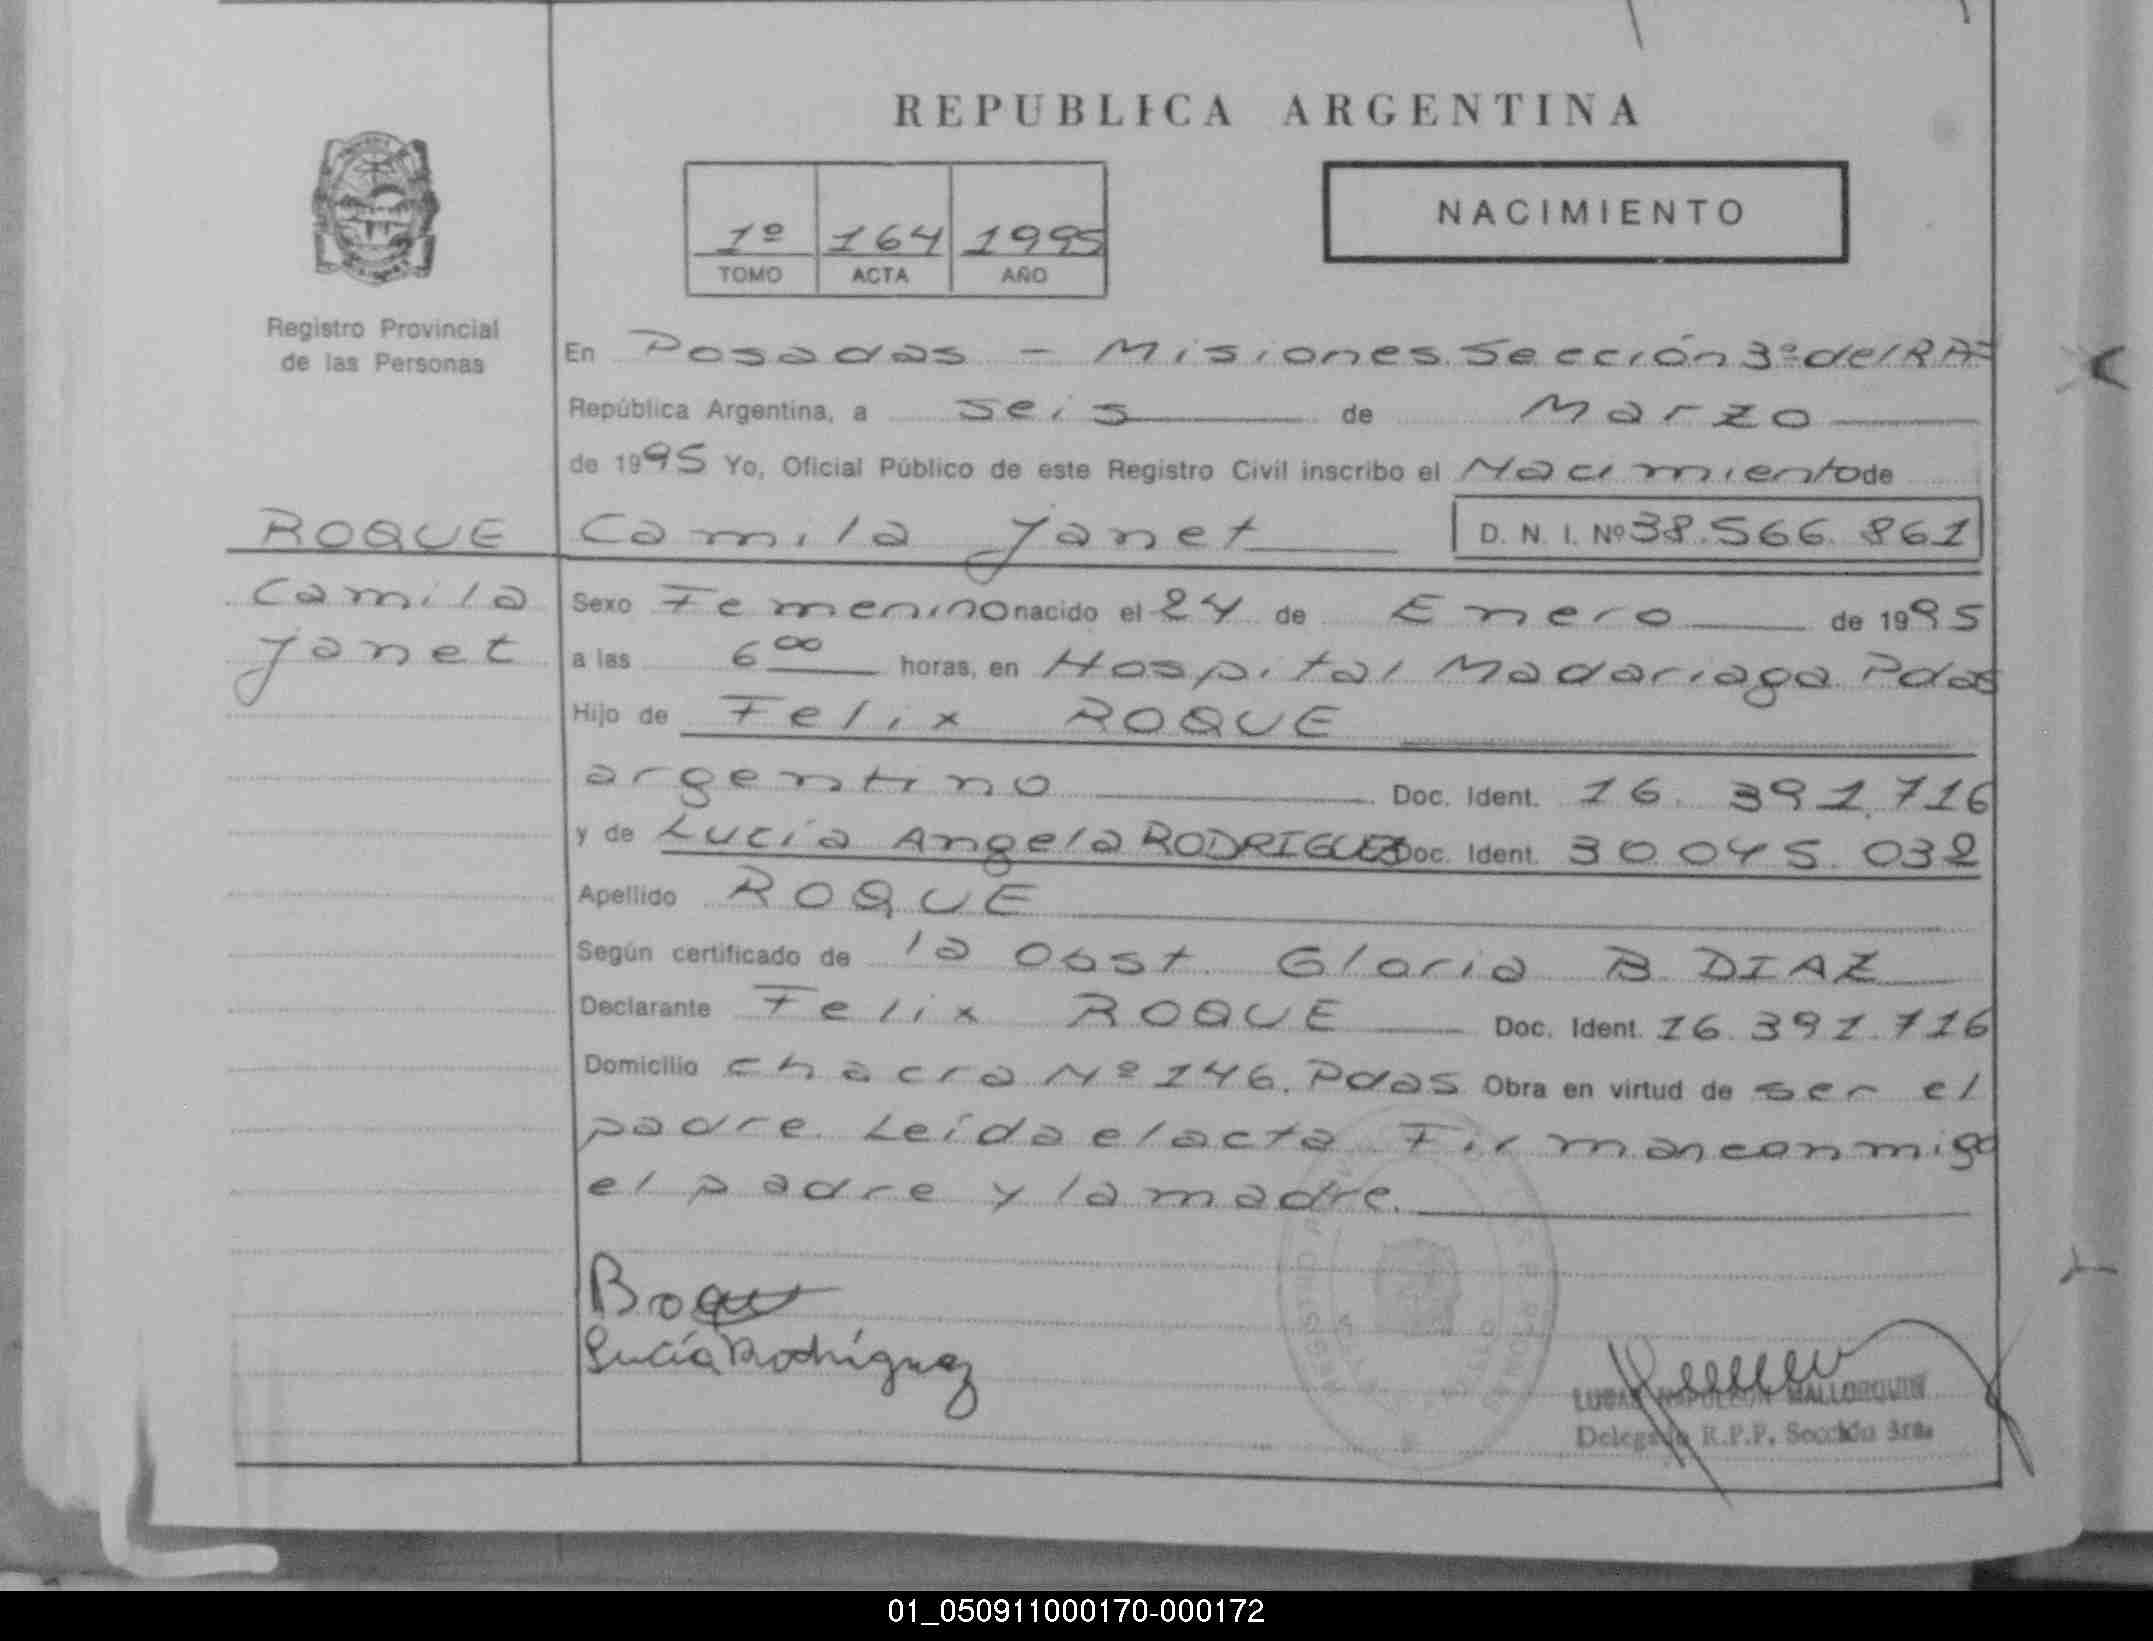 REPUBLICA ARGENTINA
1º 164 1995
TOMO ACTA AÑO
NACIMIENTO
Registro Provincial
de las Personas
En Posadas - Misiones. Sección 3º del R.P.
República Argentina, a seis de Marzo
de 1995 Yo, Oficial Público de este Registro Civil inscribo el Nacimiento de
ROQUE Camila Janet D. N. I. Nº 38.566.861
Camila
Janet
Sexo Femenino nacido el 24 de Enero de 1995
a las 6 00 horas, en Hospital Madariaga Pdas
Hijo de Felix ROQUE
argentino Doc. Ident. 16.391.716
y de Lucía Angela RODRIGUEZ Doc. Ident. 30.045.032
Apellido ROQUE
Según certificado de la Obst. Gloria B DIAZ
Declarante Felix ROQUE Doc. Ident. 16.391.716
Domicilio chacra Nº 146. Pdas Obra en virtud de ser el
padre. Leída el acta Firman conmigo
el padre y la madre.
Roque
Lucía Rodríguez
LUCAS NAPOLEON MALLORQUIN
Delegado R.P.P. Sección 3ra.
01_050911000170-000172